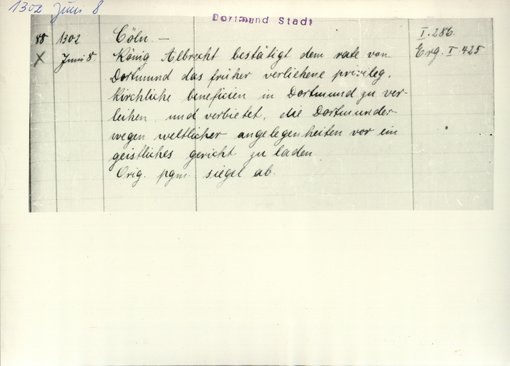 1302 Juni 8
Dortmund Stadt
85 1302 Cöln — I. 286.
X Juni 8 König Albrecht bestätigt dem rate von Erg. I 425
Dortmund das früher verliehene privileg,
kirchliche beneficien in Dortmund zu ver-
leihen und verbietet, die Dortmunder
wegen weltlicher angelegenheiten vor ein
geistliches gericht zu laden.
Orig. pgm. siegel ab.